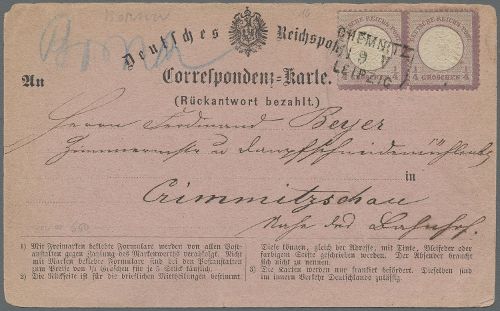 Borna
Borna
Deutsches Reichspost
DEUTSCHE REICHS-POST
1/4 GROSCHEN 1/4
DEUTSCHE REICHS-POST
1/4 GROSCHEN 1/4
CHEMNITZ
9 V
LEIPZIG
An
Correspondenz-Karte.
(Rückantwort bezahlt.)
Herrn Ferdinand Beyer
Zimmermstr u Dampfschneidemühlenb
in
Crimmitzschau
Nahe des Bahnhof.
1) Mit Freimarken beklebte Formulare werden von allen Post-
anstalten gegen Zahlung des Markenwerths verabfolgt. Nicht
mit Marken beklebte Formulare sind bei den Postanstalten
zum Preise von ½ Groschen für je 5 Stück käuflich.
2) Die Rückseite ist für die brieflichen Mittheilungen bestimmt.
Diese können, gleich der Adresse, mit Tinte, Bleifeder oder
farbigem Stifte geschrieben werden. Der Absender braucht
sich nicht zu nennen.
3) Die Karten werden nur frankirt befördert. Dieselben sind
im innern Verkehr Deutschlands zulässig.